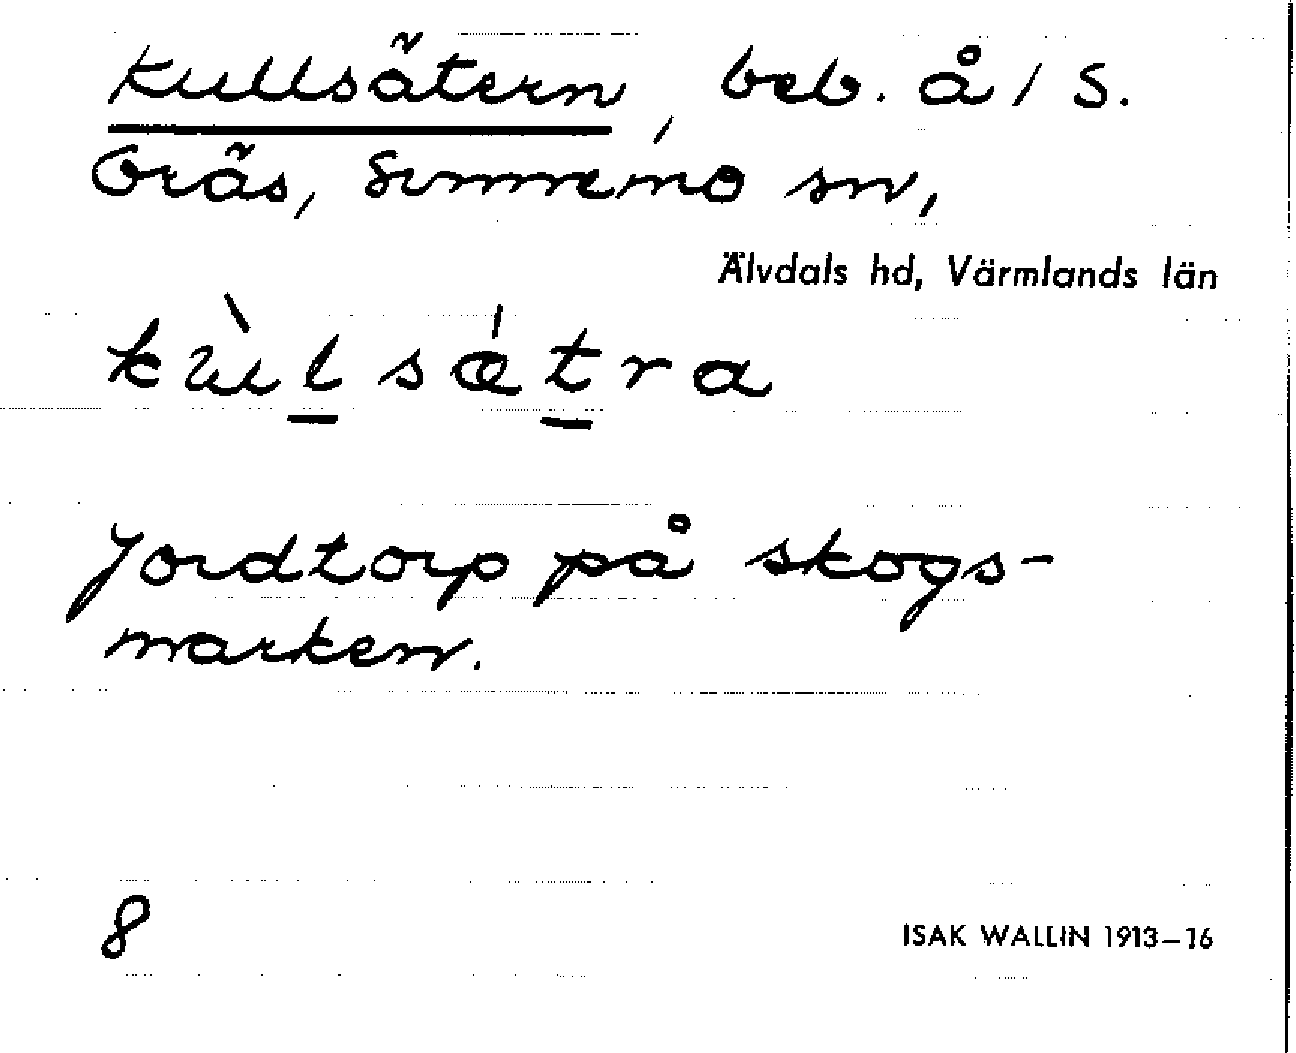 Kullsätern, beb. å / S.
Gräs, Sunnemo sn,
Älvdals hd, Värmlands län
kùlsǽtra
Jordtorp på skogs-
marken.
8
ISAK WALLIN 1913–16